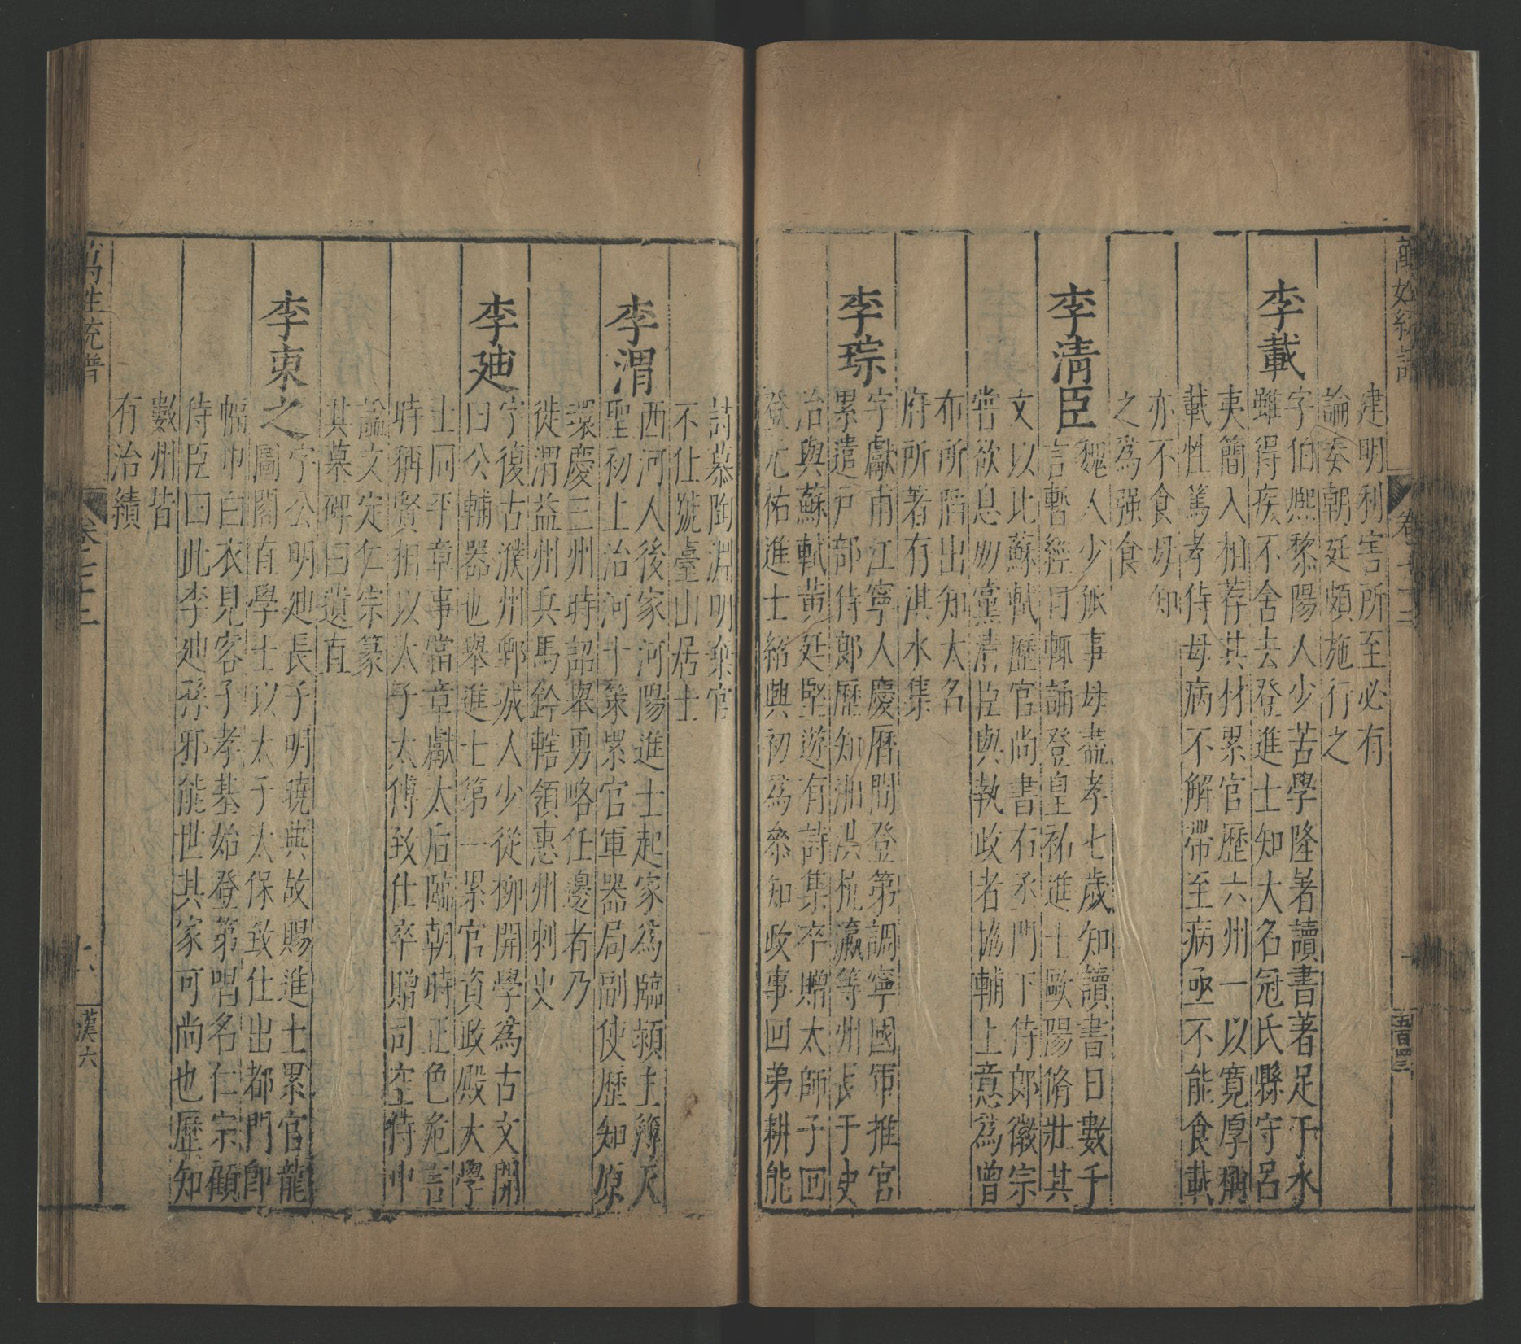 建明利害所至必有
論奏朝廷頗施行之
李載
字伯熙黎陽人少苦學隆著讀書著足于水
雖得疾不舍去登進士知大名冠氏縣守呂
夷簡入相荐其材累官歷六州一以寬厚稱
載性篤孝侍母病不解帶至病亟不能食載
亦不食母知
之為强食
李清臣
魏人少孤事母盡孝七歲知讀書日數千
言暫經目輒誦登皇祐進士歐陽脩壯其
文以比蘇軾歷官尚書右丞門下侍郎徽宗
嘗欲息朋黨清臣與執政者協輔上意為曾
布所陷出知大名
府所著有淇水集
李琮
字獻甫江寧人慶曆間登第調寧國軍推官
累遣戶部侍郎歷知湘洪杭瀛等州長于史
治與蘇軾黃廷堅遊有詩集卒贈太師子回
登元祐進士紹興初為叅知政事回弟耕能
詩慕陶淵明棄官
不仕號臺山居士
李渭
西河人後家河陽進士起家為臨潁主簿天
聖初上治河十策累官軍器局副使歷知原
環慶三州時詔舉勇略任邊者乃
徙渭益州兵馬鈐轄領惠州刺史
李廸
字復古濮州鄄城人少從柳開學為古文開
曰公輔器也舉進士第一累官資政殿大學
士同平章事當章獻太后臨朝時正色危言
時稱賢相以太子太傅致仕卒贈司空侍中
諡文定仁宗篆
其墓碑曰遺直
李東之
字公明廸長子明曉典故賜進士累官龍
圖閣直學士以太子太保致仕出都門卽
幅巾白衣見客子孝基始登第唱名仁宗顧
侍臣曰此李廸孫邪能世其家可尚也歷知
數州皆
有治績
萬姓統譜
卷七十二
十六
漢六